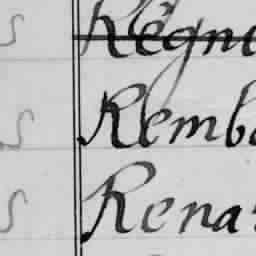 s Regne
s Remb
s Rena